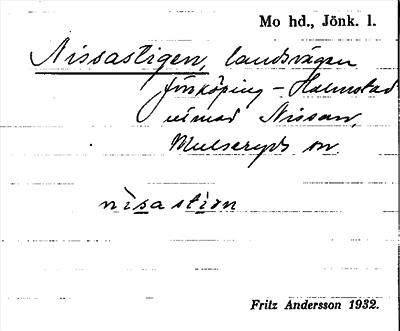 Mo hd., Jönk. l.
Nissastigen, landsvägen
Jönköping - Halmstad
utmed Nissan,
Mulseryds sn.
nisastion
Fritz Andersson 1932.